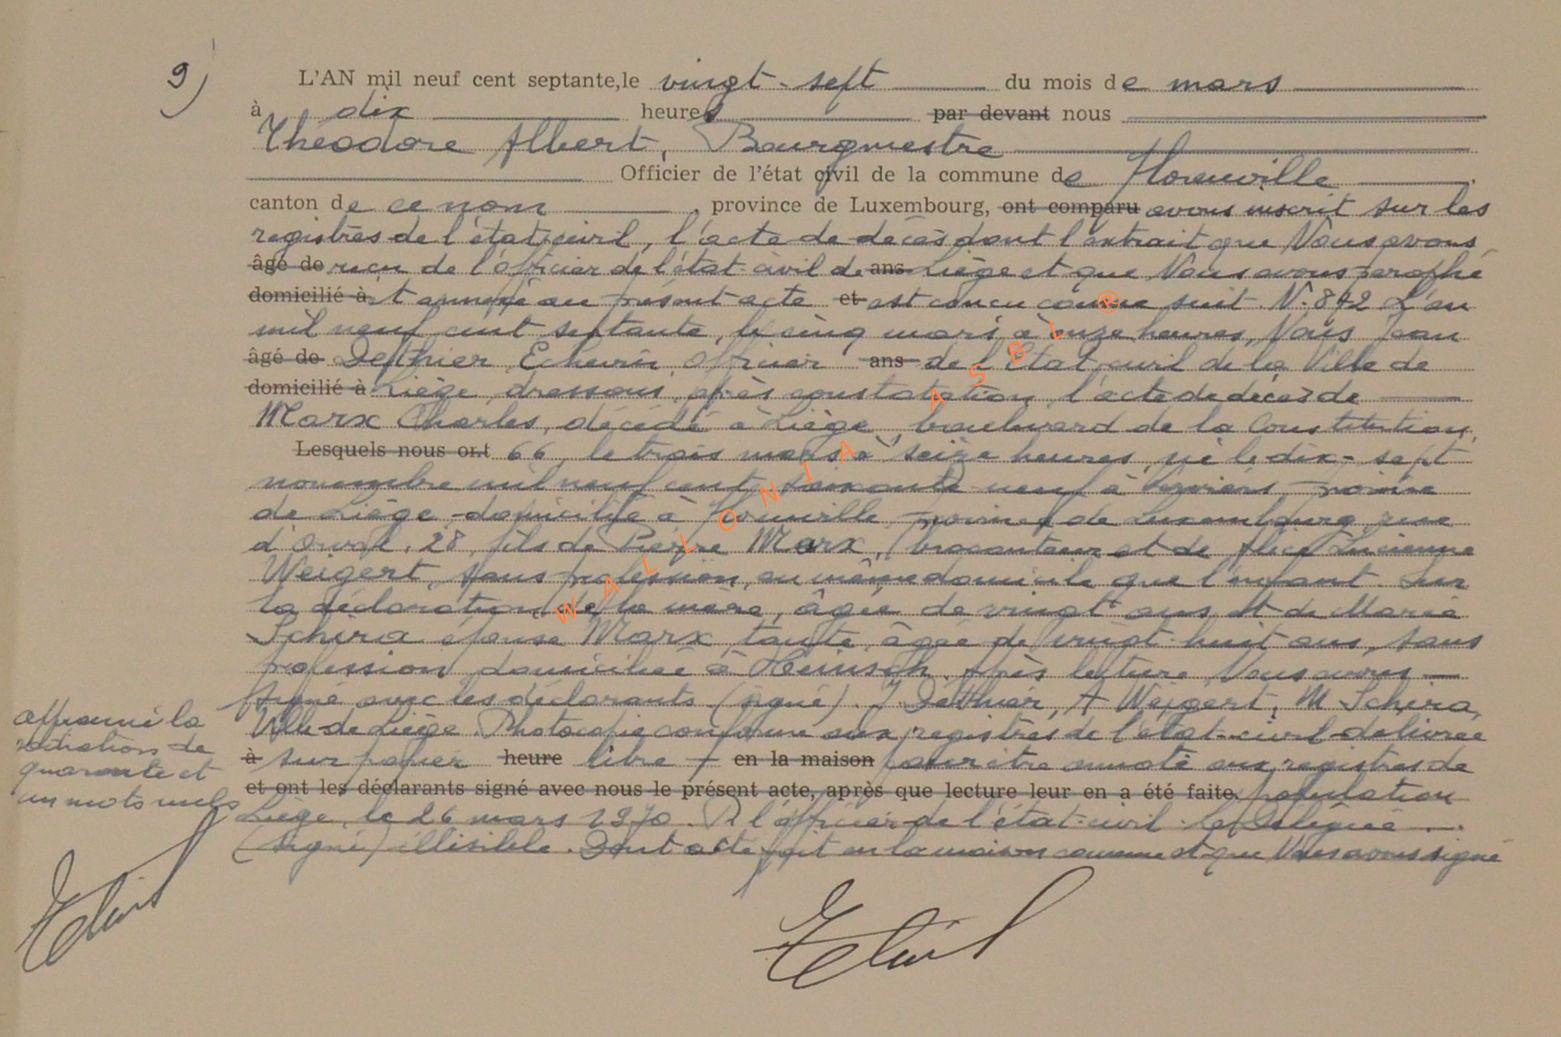 9)
L'AN mil neuf cent septante, le vingt-sept du mois de mars
à dix heures par devant nous
Théodore Albert, Bourgmestre
Officier de l'état civil de la commune de Florenville
canton de ce nom, province de Luxembourg, ont comparu avons inscrit sur les
registres de l'état civil, l'acte de décès dont l'extrait que Nous avons
âgé de reçu de l'officier de l'état civil de ans Liège et que Nous avons paraphé
domicilié à et annexé au présent acte et est conçu comme suit N. 842 L'an
mil neuf cent septante, le cinq mars à onze heures, Nous Jean
âgé de Dethier, Echevin, officier ans de l'Etat civil de la Ville de
domicilié à Liège, dressons, après constatation, l'acte de décès de
Marx Charles, décédé à Liège, boulevard de la Constitution,
Lesquels nous ont 66, le trois mars à seize heures, né le dix-sept
novembre mil neuf cent soixante neuf à Verviers, province
de Liège, domicilié à Florenville province de Luxembourg, rue
d'Orval, 28, fils de Pierre Marx, brocanteur et de Alice Lucienne
Weigert, sans profession, au même domicile que l'enfant. Sur
la déclaration de la mère, âgée de vingt ans et de Maria
Schira épouse Marx, tante, âgée de vingt huit ans, sans
profession domiciliée à Heinsch. Après lecture Nous avons
signé avec les déclarants (signé). J Dethier, A Weigert, M Schira,
Ville de Liège Photocopie conforme aux registres de l'état-civil délivrée
à sur papier heure libre en la maison pour être annoté aux registres de
et ont les déclarants signé avec nous le présent acte, après que lecture leur en a été faite. population
Liège, le 26 mars 1970. P. l'officier de l'état-civil. le Délégué
(signé) illisible. Dont acte fait en la maison commune et que Nous avons signé
approuvé la
radiation de
quarante et
un mots nuls
WALLONIA ASBL ®